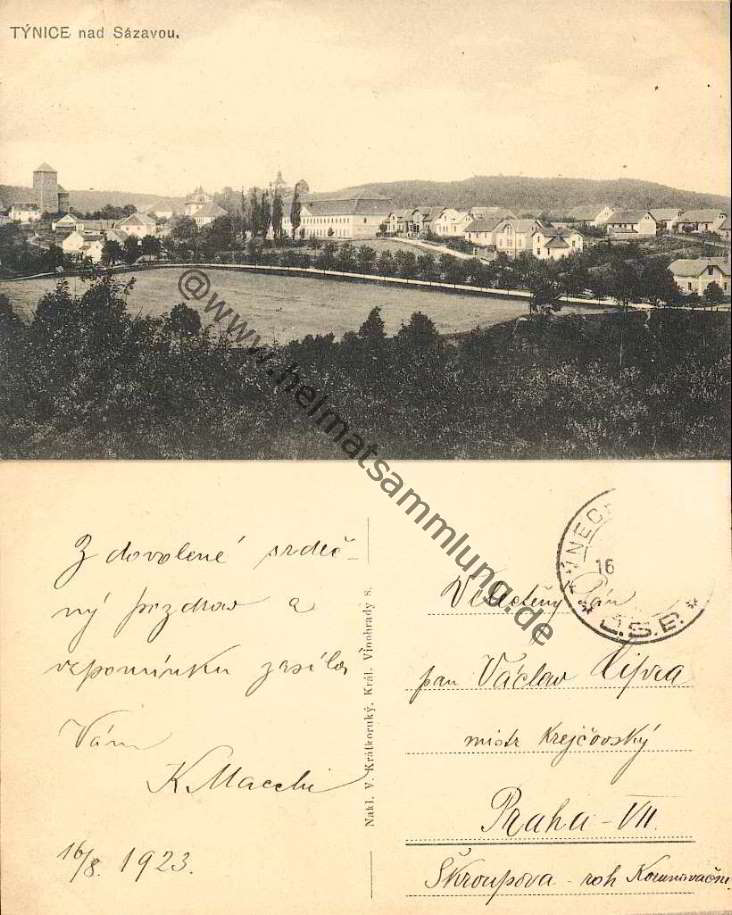 TÝNICE nad Sázavou.
@www.heimatsammlung.de
Z dovolené srdeč-
ný pozdrav a
vzpomínku zasílá
Vám
K Macchi
16/8. 1923.
Nakl. V. Krátkoruký, Král. Vinohrady 8.
ÝNEC
16
Č.S.P.
Velactěný pán
pan Václav
mistr Krejčovský
Praha - VII.
Škroupova - roh